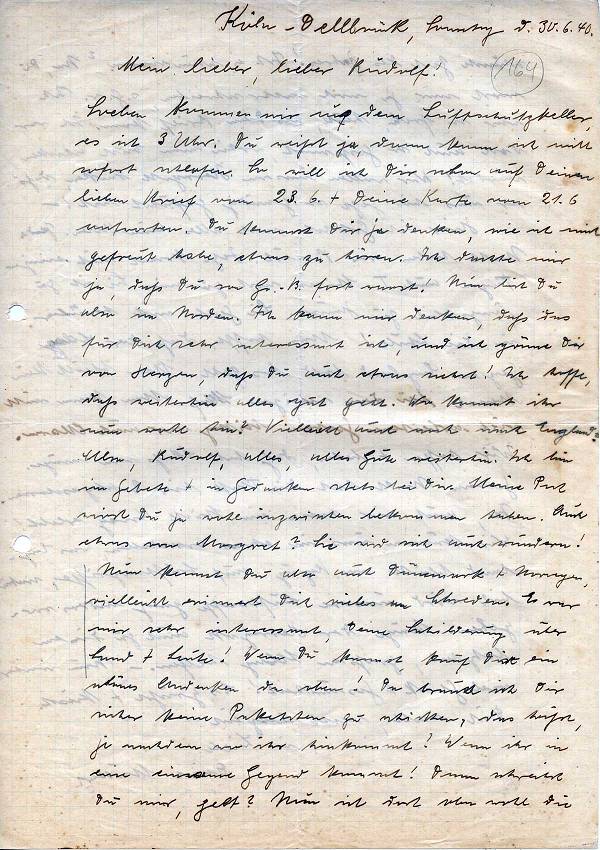 Köln-Dellbrück, Sonntag d. 30.6.40.
Mein lieber, lieber Rudolf!
164
Soeben kommen wir aus dem Luftschutzkeller,
es ist 3 Uhr. Du weißt ja, dann kann ich nicht
sofort schlafen. So will ich Dir schon auf Deinen
lieben Brief vom 23.6. + Deine Karte vom 21.6
antworten. Du kannst Dir ja denken, wie ich mich
gefreut habe, etwas zu hören. Ich dachte mir
ja, daß Du von Gr.-B. fort warst! Nun bist Du
also im Norden. Ich kann mir denken, daß das
für Dich sehr interessant ist, und ich gönne Dir
von Herzen, daß Du auch etwas siehst! Ich hoffe,
daß weiterhin alles gut geht. Wo kommt ihr
nun wohl hin? Vielleicht auch noch nach England?
Also, Rudolf, alles, alles Gute weiterhin. Ich bin
im Gebete + in Gedanken stets bei Dir. Meine Post
wirst Du ja wohl inzwischen bekommen haben. Auch
etwas von Margret? Sie wird sich auch wundern!
Nun kennst Du also auch Dänemark + Norwegen,
vielleicht erinnert Dich vieles an Schweden. Es war
mir sehr interessant, Deine Schilderung über
Land + Leute! Wenn Du kannst kauf Dir ein
schönes Andenken da oben! Da brauch ich Dir
sicher keine Paketchen zu schicken, das heißt,
je nachdem wo ihr hinkommt? Wenn ihr in
eine einsame Gegend kommt! Dann schreibst
Du mir, gelt? Nun ist dort oben wohl die